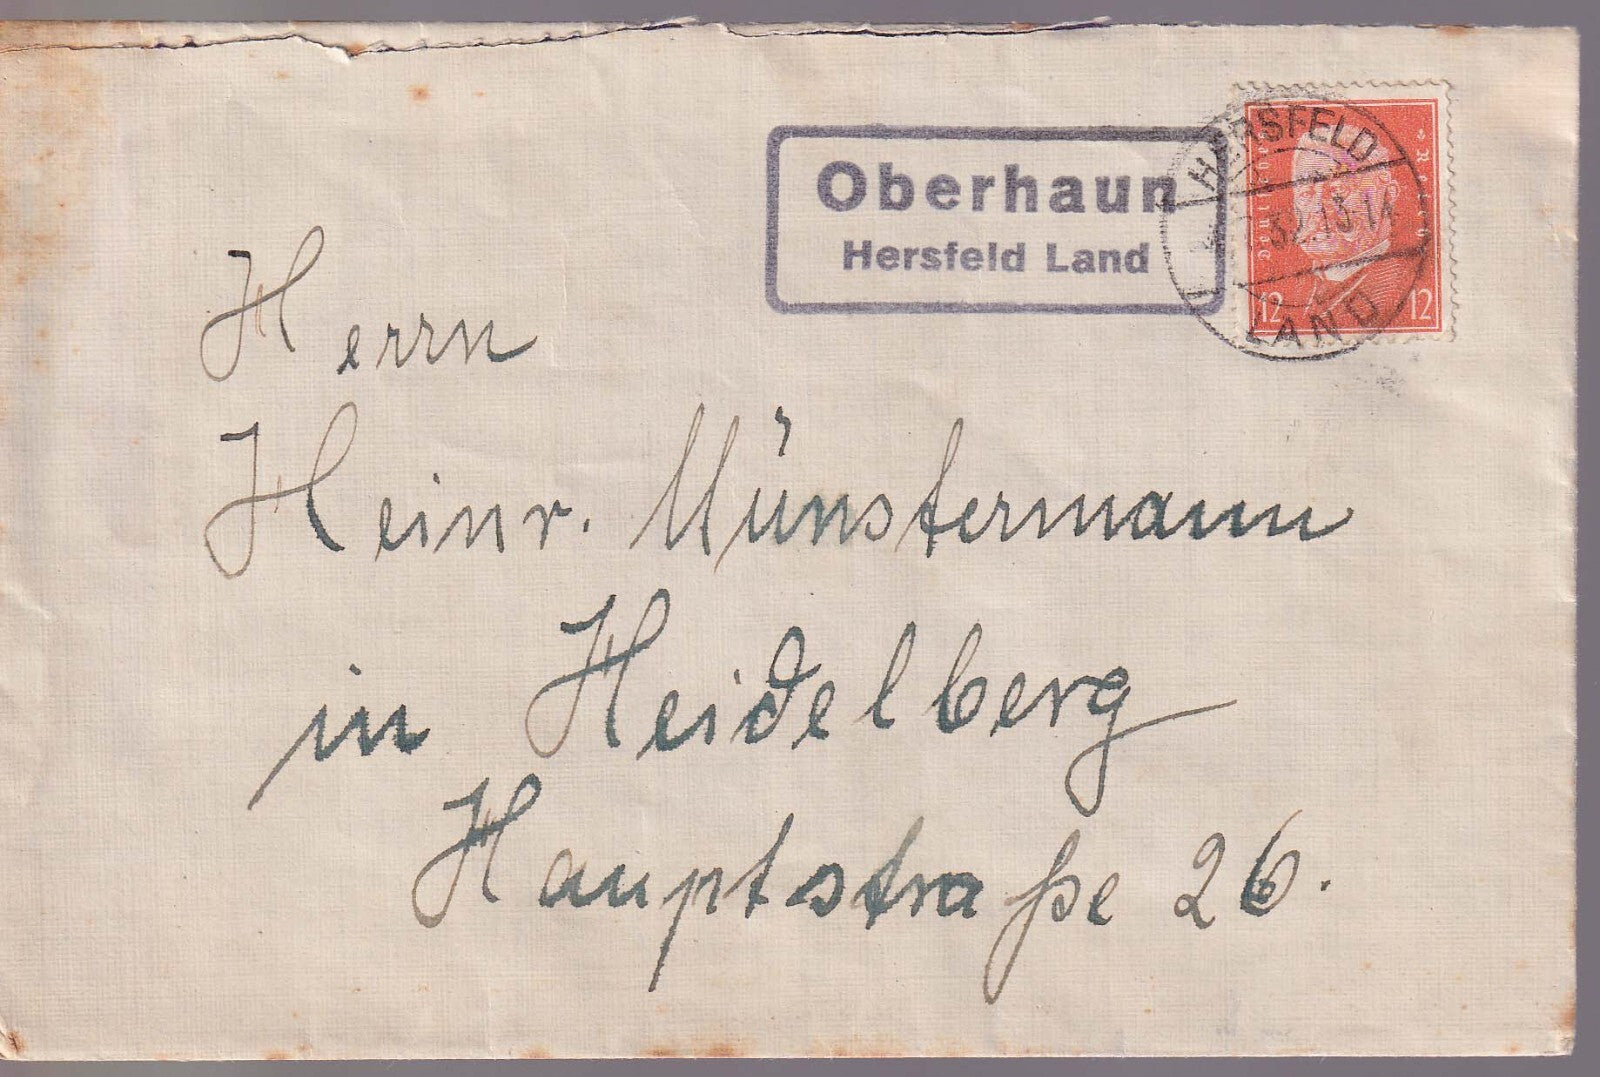 Oberhaun
Hersfeld Land
HERSFELD
32.13-14
LAND
12 12
Herrn
Heinr. Münstermann
in Heidelberg
Hauptstraße 26.